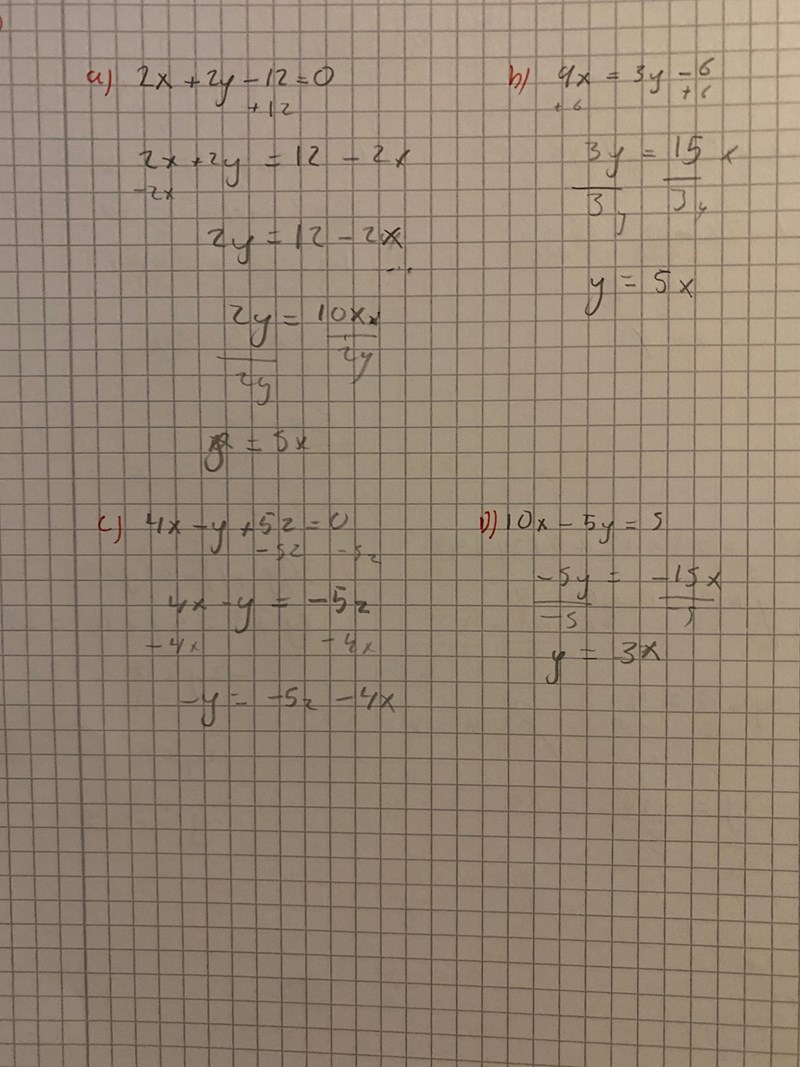 a) 2x + 2y - 12 = 0
+12
2x + 2y = 12 - 2x
-2x
2y = 12 - 2x
2y = 10x
2y 2y
y = 5x
b) 9x = 3y - 6
+6 +6
3y = 15x
3y 3y
y = 5x
c) 4x - y + 5z = 0
-5z -5z
4x - y = -5z
-4x -4x
-y = -5z - 4x
D) 10x - 5y = 5
-5y = -15x
-5 -5
y = 3x